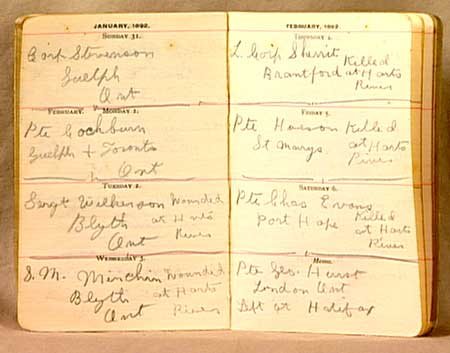 JANUARY, 1892.
SUNDAY 31.
Corp Stevenson
Guelph
Ont
FEBRUARY. MONDAY 1.
Pte Cochburn
Guelph + Toronto
Ont
TUESDAY 2.
Sergt Wilkenson Wounded
Blyth at Harts
Ont River
WEDNESDAY 3.
S. M. Minchin Wounded
Blyth at Harts
Ont River
FEBRUARY, 1892.
THURSDAY 4.
L. Corp Sherrit Killed
Brantford at Harts
River
FRIDAY 5.
Pte Killed
St Marys at Harts
River
SATURDAY 6.
Pte Chas Evans
Port Hope Killed
at Harts
River
MEMO.
Pte Geo. Hurst
London Ont
Left at Halifax